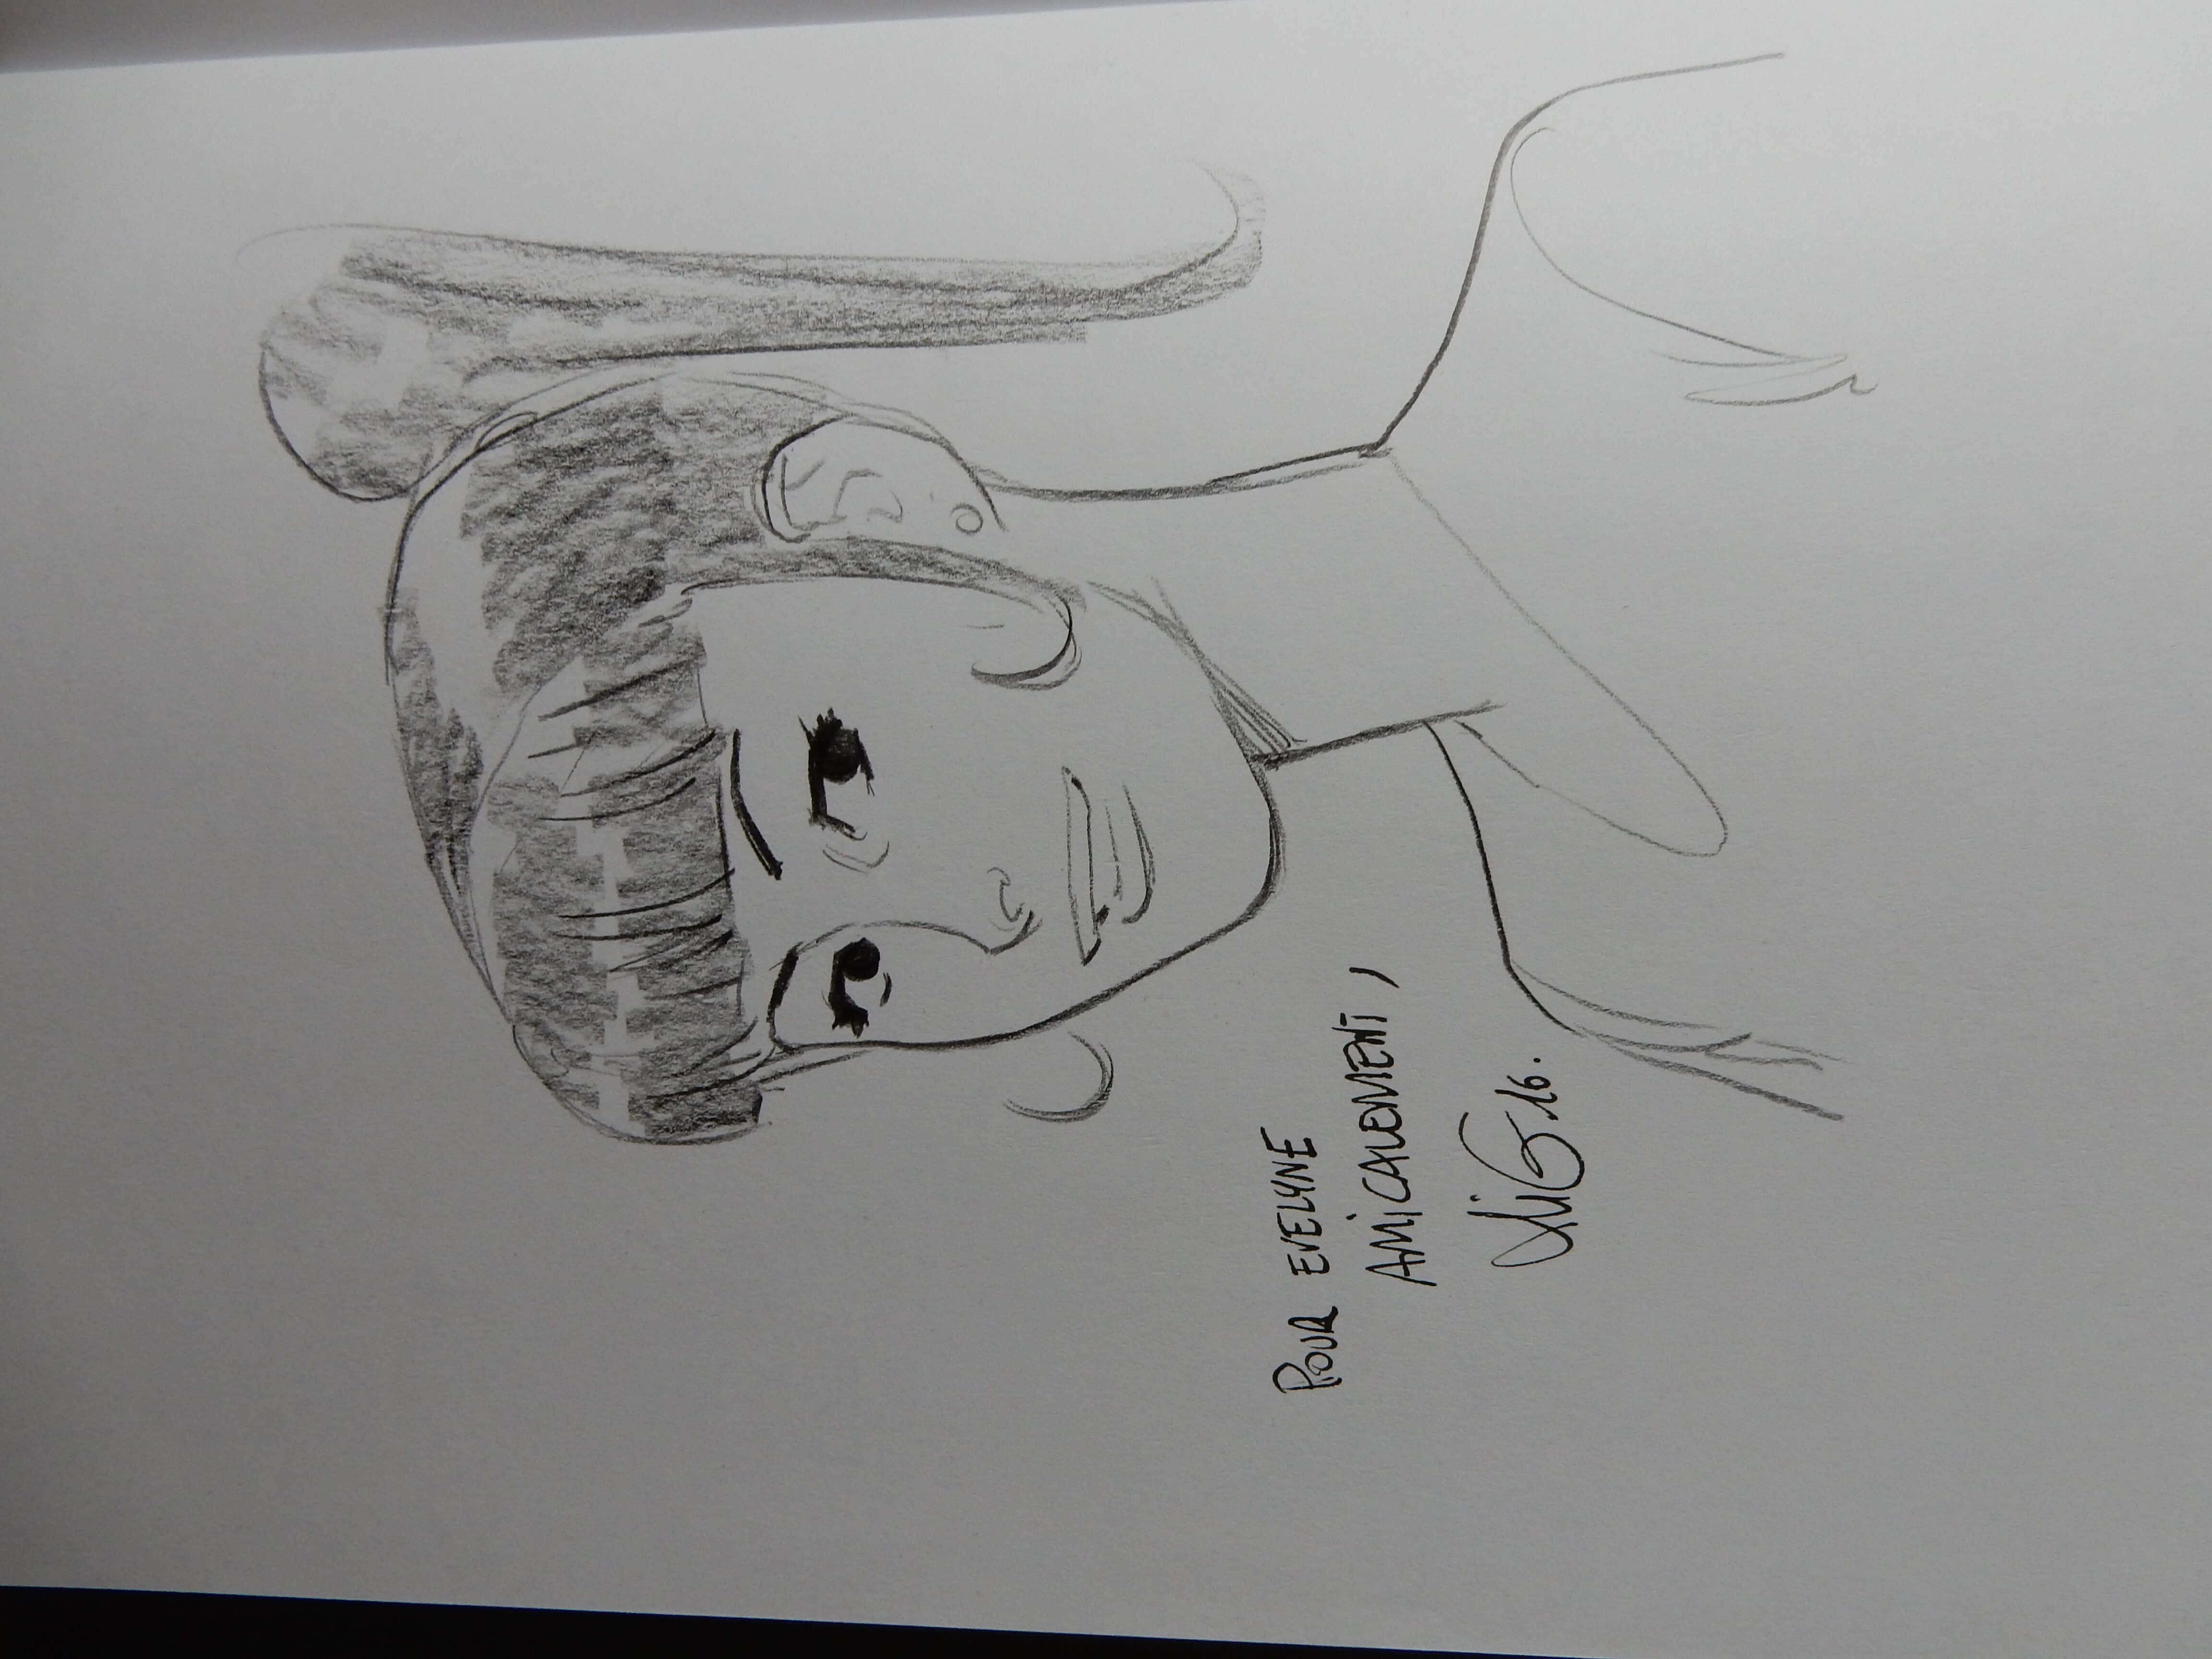 POUR EVELYNE
AMICALEMENT,
16.